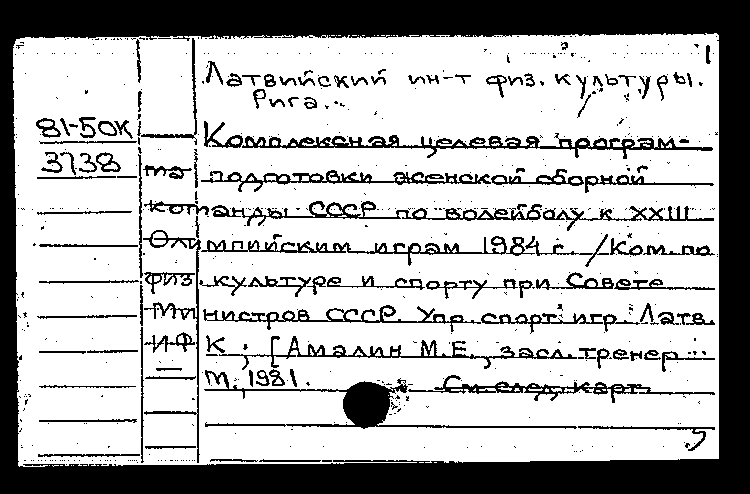 Латвийский ин-т физ. культуры.
Рига.
81-50К
3738
Комплексная целевая програм-
ма подготовки женской сборной
команды СССР по волейболу к XXIII
Олимпийским играм 1984 г. /Ком. по
физ. культуре и спорту при Совете
Министров СССР. Упр. спорт. игр. Латв.
ИФК; [Амалин М.Е., засл. тренер ...
М., 1981.
См. след. карт.